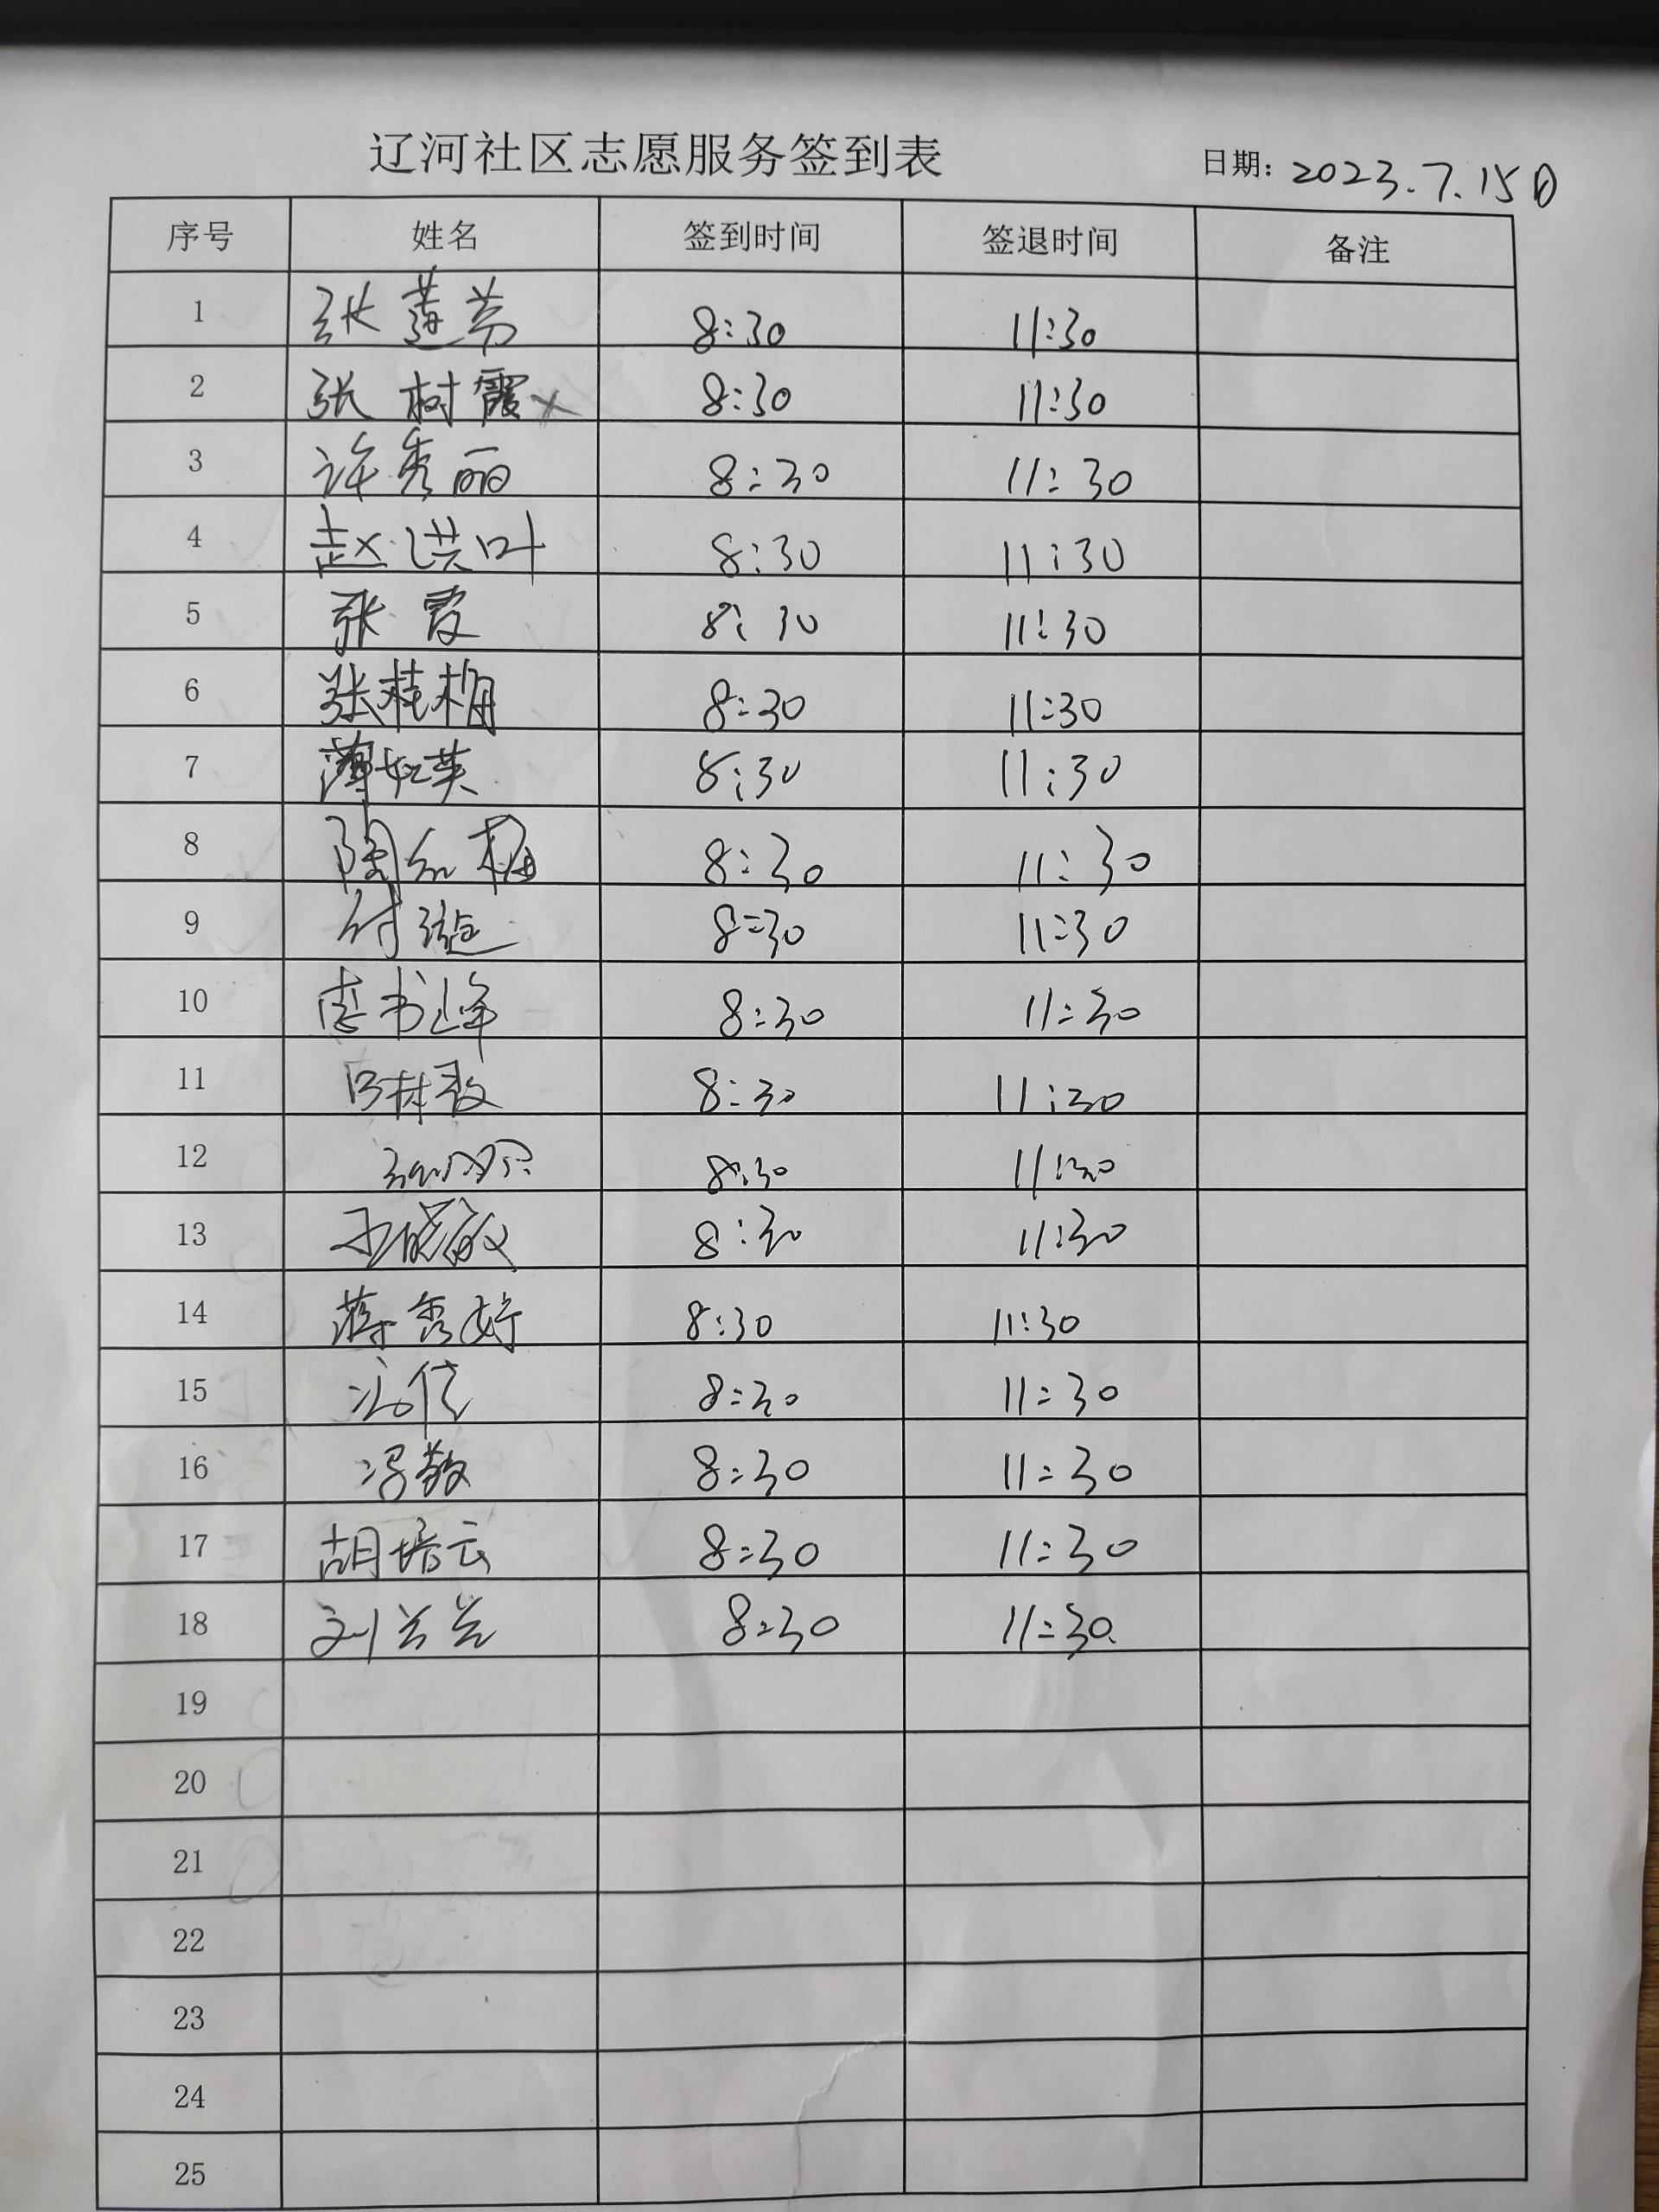 辽河社区志愿服务签到表 日期: 2023.7.15日
序号 姓名 签到时间 签退时间 备注
1 张莲芳 8:30 11:30
2 张树霞 8:30 11:30
3 许秀丽 8:30 11:30
4 赵洪叶 8:30 11:30
5 张霞 8:30 11:30
6 张桂梅 8:30 11:30
7 薄如英 8:30 11:30
8 陶红梅 8:30 11:30
9 付 8:30 11:30
10 书峰 8:30 11:30
11 8:30 11:30
12 8:30 11:30
13 王晓敏 8:30 11:30
14 蒋秀婷 8:30 11:30
15 8:30 11:30
16 冯敬 8:30 11:30
17 胡培云 8:30 11:30
18 刘兰兰 8:30 11:30
19
20
21
22
23
24
25